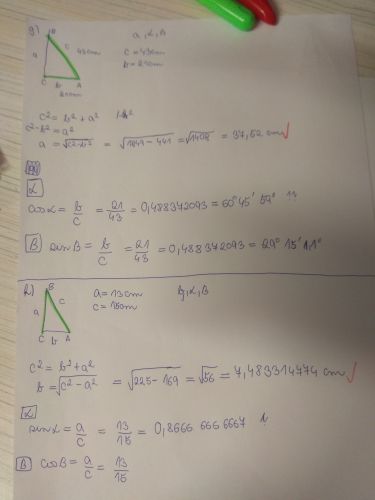 g)
B
a, α, β
a
c
43cm
c = 43cm
C
b
A
b = 21cm
21cm
c² = b² + a²
c² - b² = a²
a = √c²-b² = √1849-441 = √1408 = 37,52 cm
α
cos α = b/c = 21/43 = 0,488372093 = 60° 45' 59"
β
sin β = b/c = 21/43 = 0,488372093 = 29° 15' 1,1"
h)
B
a = 13cm
b, α, β
a
c
c = 15cm
C
b
A
c² = b² + a²
b = √c² - a² = √225 - 169 = √56 = 7,483314774 cm
α
sin α = a/c = 13/15 = 0,8666 666 6667
β
cos β = a/c = 13/15